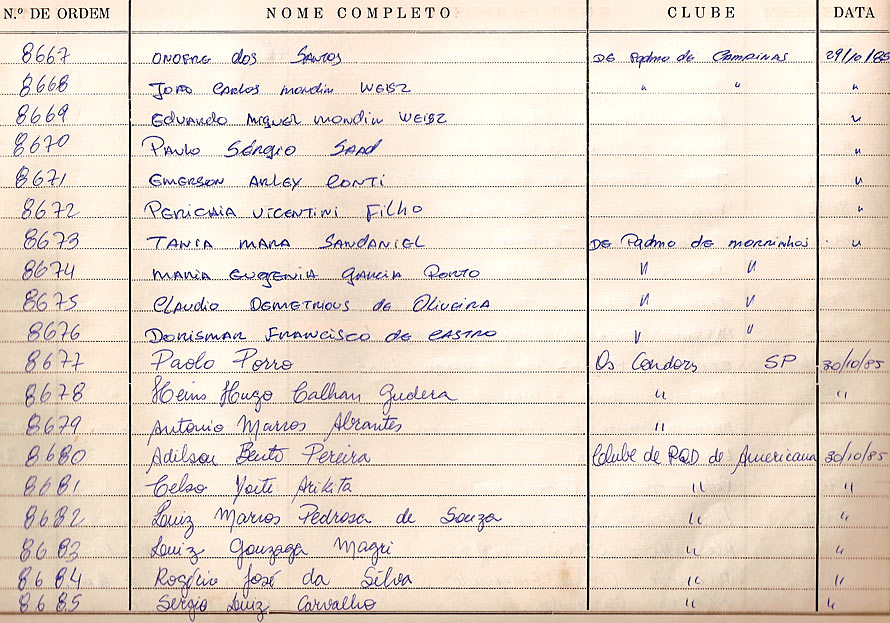 N.º DE ORDEM NOME COMPLETO CLUBE DATA
8667 ONOFRE dos SANTOS DE Pqdmo de CAMPINAS 29/10/85
8668 JOÃO CARLOS mondin WEISZ " " "
8669 EDUARDO MIGUEL MONDIN WEISZ "
8670 PAULO SÉRGIO SAAD "
8671 EMERSON ARLEY CONTI "
8672 VICENTINI FILHO "
8673 TANIA MARA SANDANIEL DE Pqdmo DE morrinhos "
8674 MARIA EUGENIA GARCIA PORTO " "
8675 CLAUDIO DEMETRIOUS de OLIVEIRA " "
8676 DORISMAR FRANCISCO de CASTRO " "
8677 Paolo Porro Os Condors SP 30/10/85
8678 Heins Hugo Calhan Gudera " "
8679 Antonio Marcos Abrantes "
8680 Adilson Bento Pereira Clube de PQD de Americana 30/10/85
8681 Celso Arikita " "
8682 Luiz Marcos Pedrosa de Souza " "
8683 Luiz Gonzaga Magri " "
8684 Rogério José da Silva " "
8685 Sergio Luiz Carvalho " "